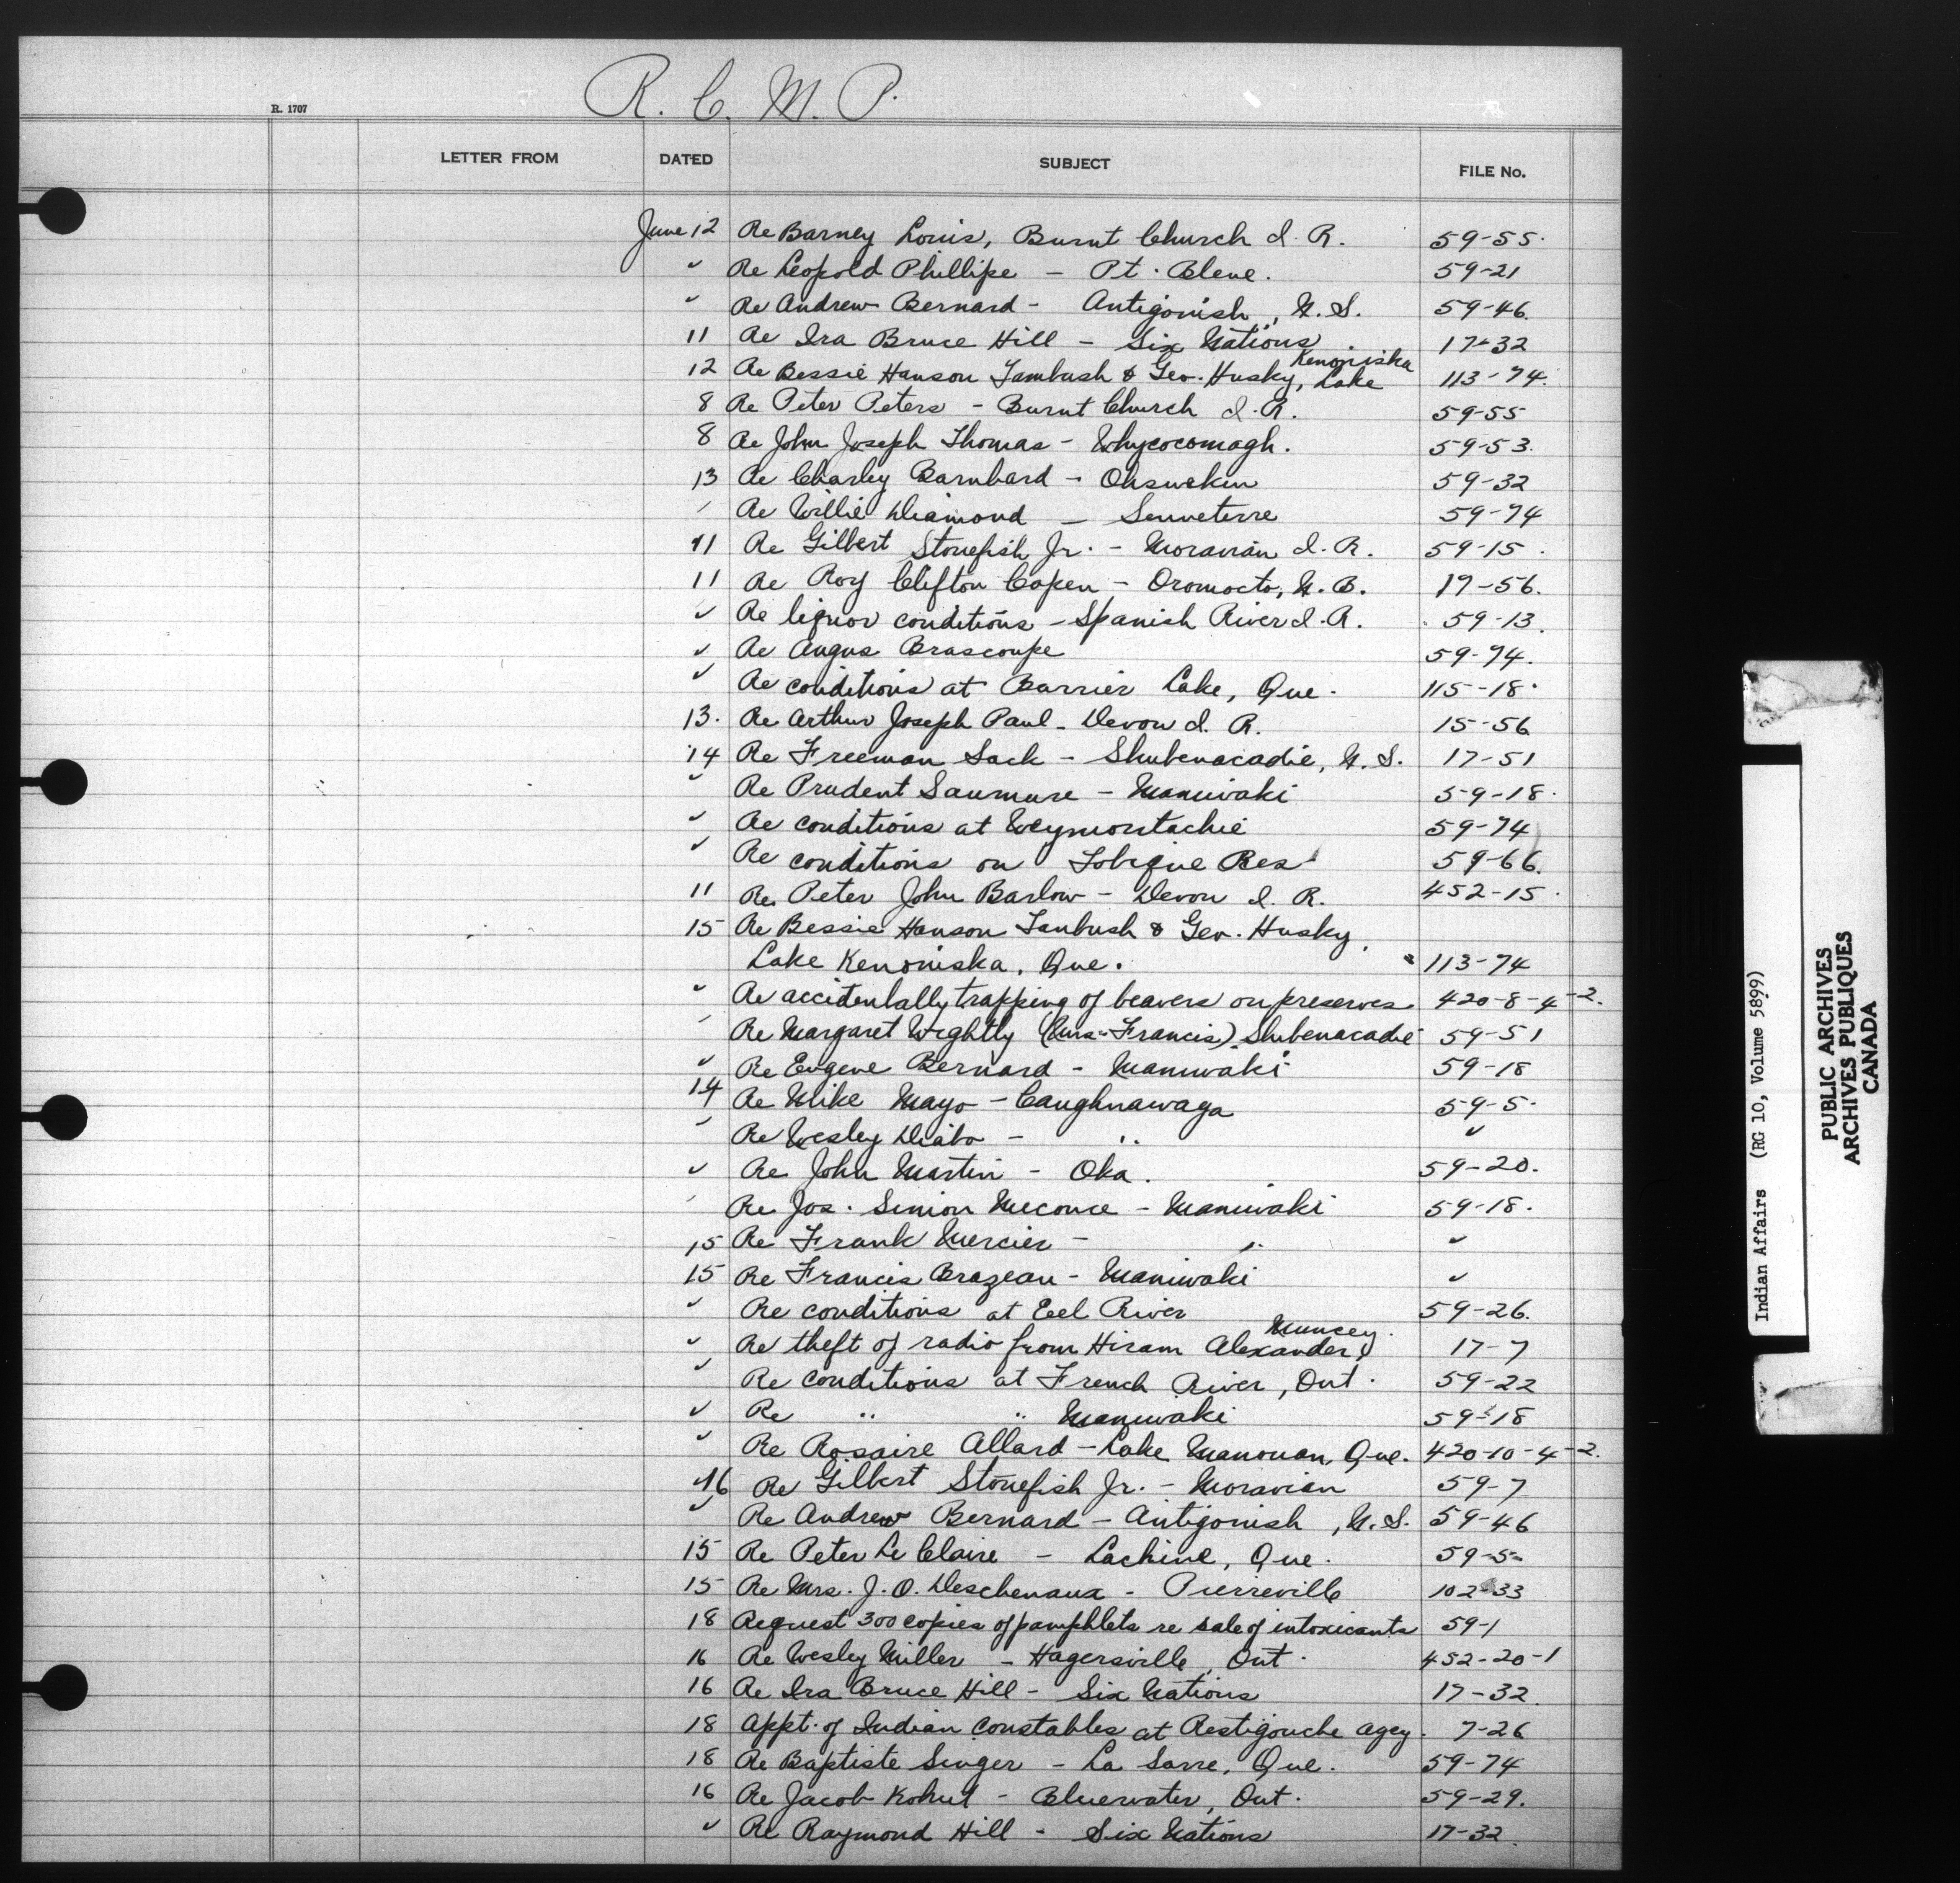 R. C. M. P.
R. 1707
LETTER FROM DATED SUBJECT FILE No.
June 12 Re Barney Louis, Burnt Church I. R. 59-55.
" Re Leopold Phillipe - Pt. Bleue. 59-21
" Re Andrew Bernard - Antigonish, N. S. 59-46.
11 Re Ira Bruce Hill - Six Nations. 17-32
Kenoniska
12 Re Bessie Hanson Tambush & Geo. Husky, Lake 113-74.
8 Re Peter Peters - Burnt Church I. R. 59-55
8 Re John Joseph Thomas - Whycocomagh. 59-53.
13 Re Charley Barnhard - Ohsweken 59-32
" Re Willie Diamond - Senneterre 59-74
11 Re Gilbert Stonefish Jr. - Moravian I. R. 59-15.
11 Re Roy Clifton Copen - Oromocto, N. B. 17-56.
" Re liquor conditions - Spanish River I. R. 59-13.
" Re Angus Brascoupe 59-74.
" Re conditions at Barrier Lake, Que. 115-18.
13. Re Arthur Joseph Paul - Devon I. R. 15-56
14 Re Freeman Sack - Shubenacadie, N. S. 17-51
" Re Prudent Saumure - Maniwaki 59-18.
" Re conditions at Weymontachie 59-74
" Re conditions on Tobique Res. 59-66.
11 Re. Peter John Barlow - Devon I. R. 452-15.
15 Re Bessie Hanson Tanbush & Geo. Husky,
Lake Kenoniska, Que. 113-74
" Re accidentally trapping of beavers on preserves 420-8-4-2.
" Re Margaret Wightly (Mrs. Francis) Shubenacadie 59-51
" Re Eugene Bernard - Maniwaki 59-18
14 Re Mike Mayo - Caughnawaga 59-5.
" Re Wesley Diabo - " "
" Re John Martin - Oka. 59-20.
" Re Jos. Simon Meconce - Maniwaki 59-18.
15 Re Frank Mercier - " "
15 Re Francis Brazeau - Maniwaki "
" Re conditions at Eel River 59-26.
Muncey.
" Re theft of radio from Hiram Alexander, 17-7
" Re conditions at French River, Ont. 59-22
" Re " " Maniwaki 59-18
" Re Rosaire Allard - Lake Manouan, Que. 420-10-4-2.
16 Re Gilbert Stonefish Jr. - Moravian 59-7
" Re Andrew Bernard - Antigonish, N. S. 59-46
15 Re Peter Le Claire - Lachine, Que. 59-5
15 Re Mrs. J. O. Deschenaux - Pierreville 102-33
18 Request 300 copies of pamphlets re sale of intoxicants 59-1
16 Re Wesley Miller - Hagersville, Ont. 452-20-1
16 Re Ira Bruce Hill - Six Nations 17-32.
18 Appt. of Indian Constables at Restigouche Agcy. 7-26
18 Re Baptiste Singer - La Sarre, Que. 59-74
16 Re Jacob Kohut - Bluewater, Ont. 59-29.
" Re Raymond Hill - Six Nations 17-32.
Indian Affairs (RG 10, Volume 5899)
PUBLIC ARCHIVES
ARCHIVES PUBLIQUES
CANADA